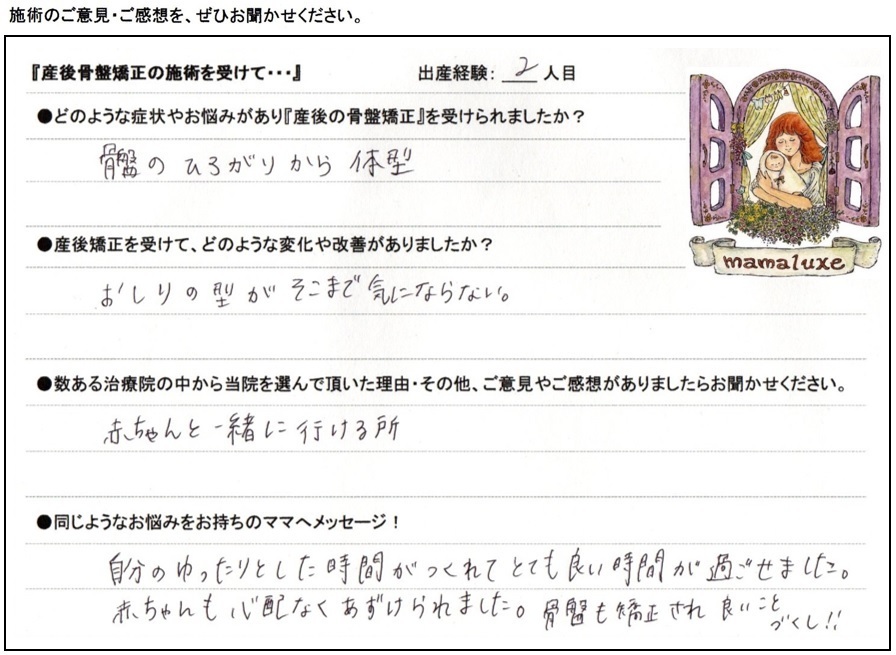 施術のご意見・ご感想を、ぜひお聞かせください。
『産後骨盤矯正の施術を受けて・・・』 出産経験: 2 人目
●どのような症状やお悩みがあり『産後の骨盤矯正』を受けられましたか？
骨盤の ひろがりから 体型
●産後矯正を受けて、どのような変化や改善がありましたか？
おしりの型が そこまで気にならない。
mamaluxe
●数ある治療院の中から当院を選んで頂いた理由・その他、ご意見やご感想がありましたらお聞かせください。
赤ちゃんと一緒に行ける所
●同じようなお悩みをお持ちのママへメッセージ！
自分のゆったりとした時間がつくれてとても良い時間が過ごせました。
赤ちゃんも心配なくあずけられました。骨盤も矯正され 良いこと
づくし!!